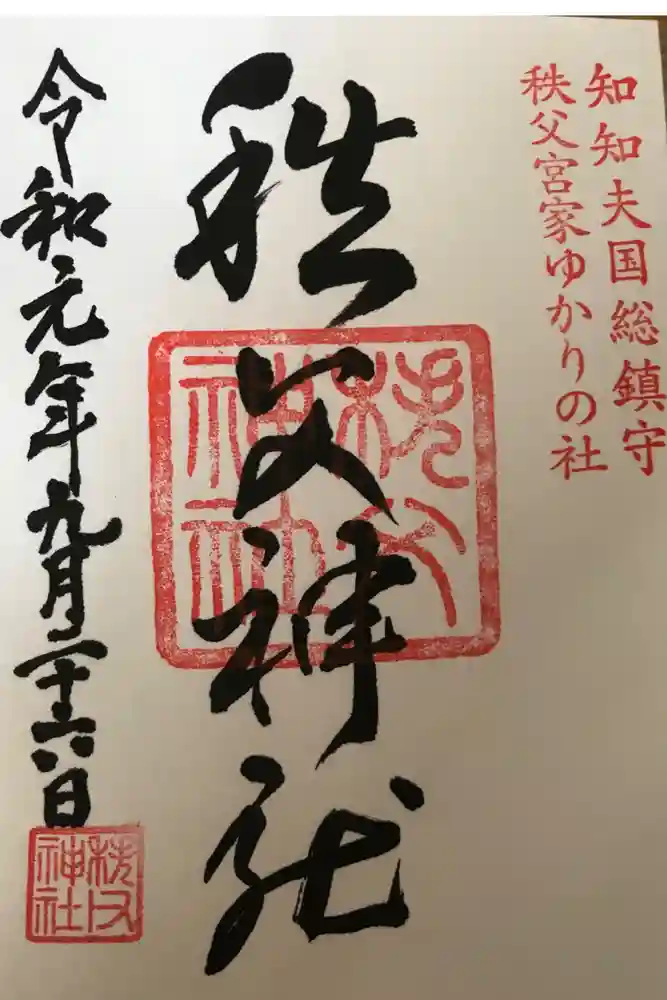 知知夫国総鎮守
秩父宮家ゆかりの社
秩父神社
秩父神社
令和元年九月二十六日
秩父神社